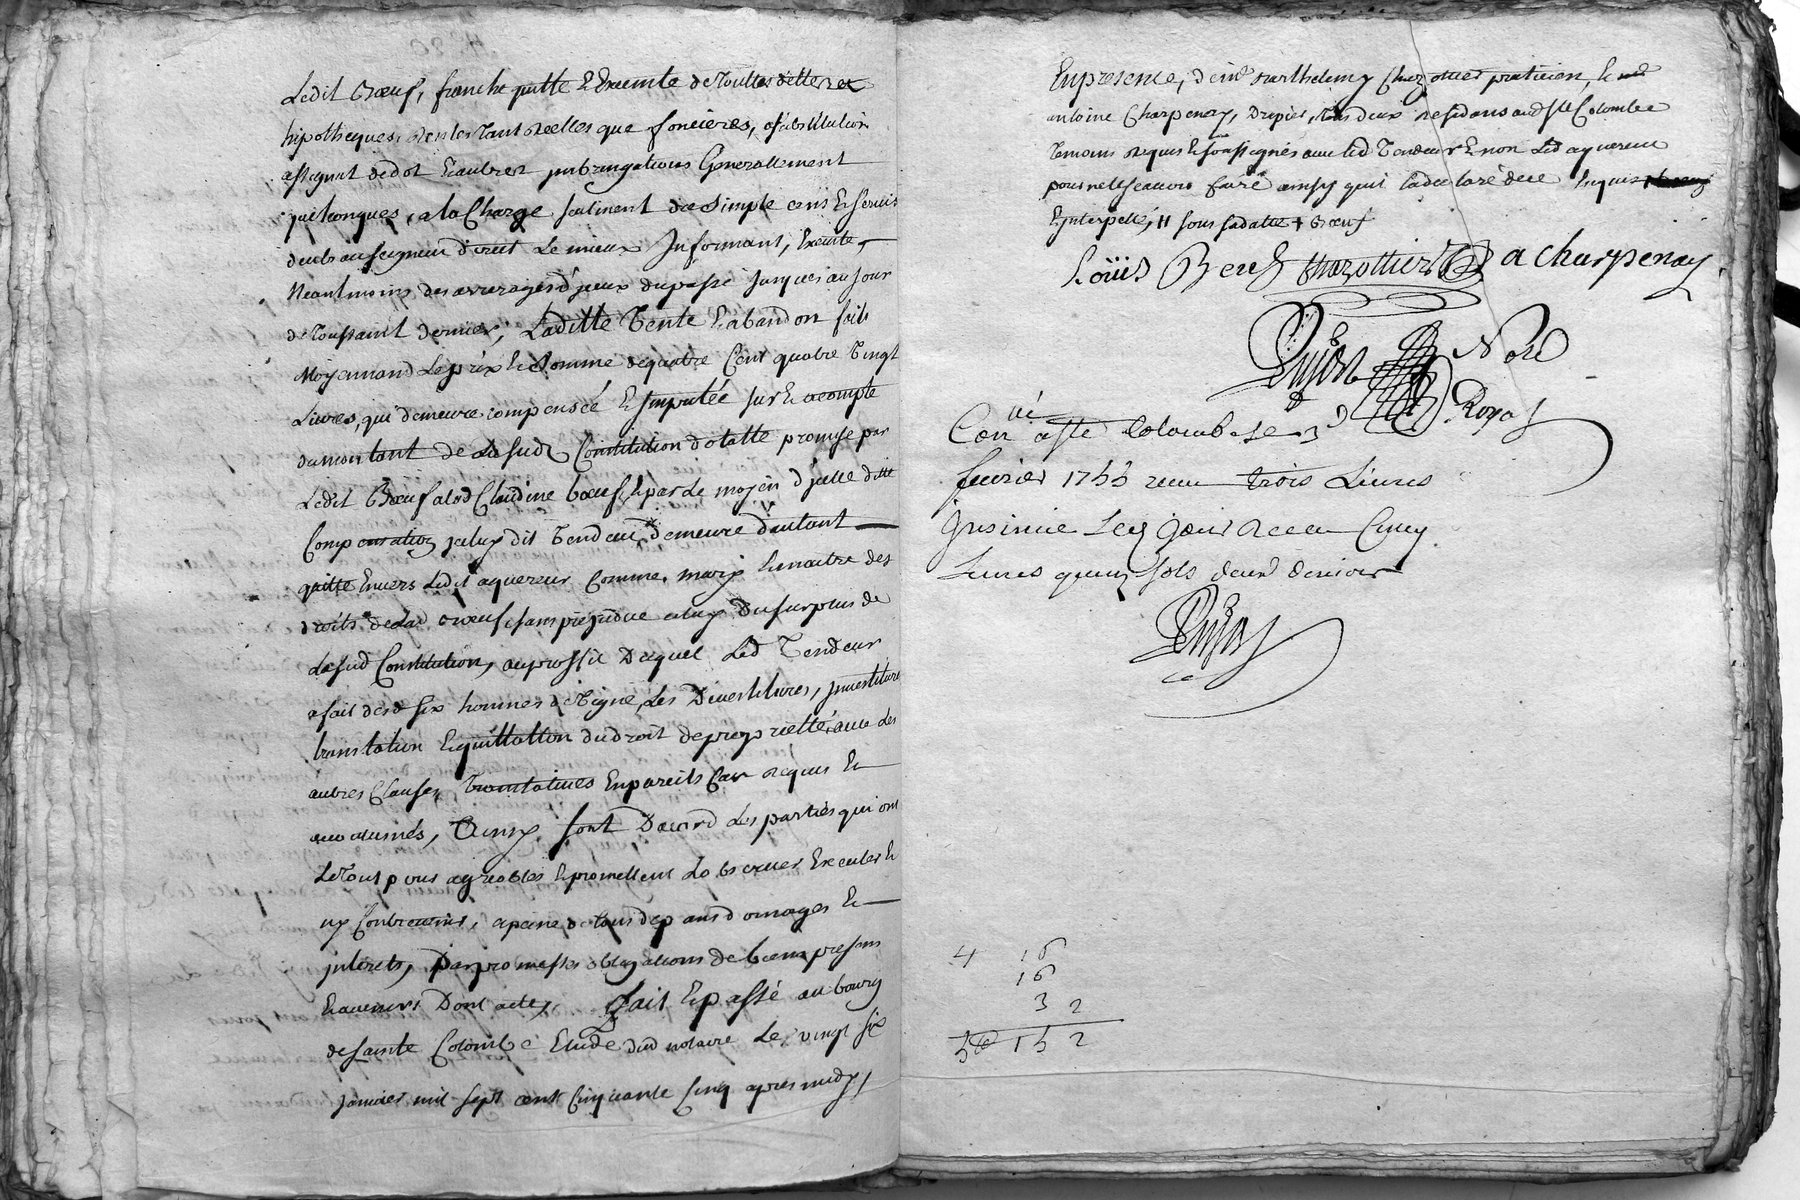 Ledit Bœuf, franche quitte & Exemte de touttes dettes et
hipotheques, rentes tant réelles que foncieres, substitution
assignat de dot & autres imbringations Generallement
quelconques, a la Charge seulment du simple cens & servis
deub au seigneur direct Le mieux Informant, Exemte
Neantmoins des arrerages d'jceux du passé jusques au jour
de toussaint dernier, Laditte Vente & abandon faits
Moyennand Le prix & somme de quatre Cent quatre Vingt
Livres, qui demeure compensée & Imputée sur & acompte
du montant de la sud Constitution dotalle promise par
Ledit Bœuf a lad Claudine bœuf, & par Le moyen d'jcelle ditte
Compensation jceluy dit Vendeur demeure d'autant
quitte Envers Ledit aquereur Comme mary & maitre des
droits de Lad Bœuf, sans prejudice a luy du surplus de
La sud Constitution, au proffit Duquel Led Vendeur
a fait des d six hommes de Vigne, Les Devestitures, jnvestitures
translation & quittation du droit de proprietté, avec Les
autres Clauses translatives En pareils Cas requis &
accoutumés, Ainsy sont D'acord Les parties qui ont
Le tout pour agreables & promettent L'observer Executer &
ny Contrevenir, a peine de tous depans domages &
jnterets, Par promesses obligations de biens presens
& avenirs Dont acte, fait & passé au bourg
de sainte Colombe Etude dud notaire Le vingt six
janvier mil sept cent Cinquante Cinq apres midy,
En presence, de me Barthelemy Chazottier praticien, & me
antoine Charpenay, Drapier, tous deux residans aud Ste Colombe
temoins requis & soussignés avec led Vendeur & non Led aquereur
pour ne le scavoir faire ainsy quil l'a declaré de ce Enquis
& jnterpellé, 11 sous sadatte + Bœuf
Loüis Beuf Chazottier a Charpenay
Dujast Nore
Royal
Conlé a Ste Colombe Le 3
fevrier 1755 receu trois Livres
Insinué Led jour Receu Cinq
Livres quinze sols deux deniers
Dujast
4 16
16
3 2
5 ll 15 2